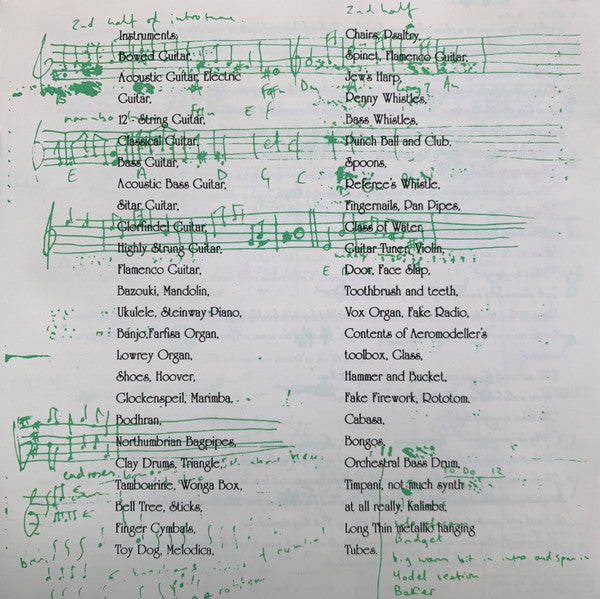 2nd half of intro tune
Instruments,
Bowed Guitar,
Acoustic Guitar, Electric
Guitar,
12 - String Guitar,
Classical Guitar,
Bass Guitar,
Acoustic Bass Guitar,
Sitar Guitar,
Glorfindel Guitar,
Highly Strung Guitar,
Flamenco Guitar,
Bazouki, Mandolin,
Ukulele, Steinway Piano,
Banjo, Farfisa Organ,
Lowrey Organ,
Shoes, Hoover,
Glockenspeil, Marimba.
Bodhran,
Northumbrian Bagpipes,
Clay Drums, Triangle,
Tambourine, Wonga Box,
Bell Tree, Sticks,
Finger Cymbals,
Toy Dog, Melodica,
2nd half
Chairs, Psaltry,
Spinet, Flamenco Guitar,
Jew's Harp,
Penny Whistles,
Bass Whistles,
Punch Ball and Club,
Spoons,
Referee's Whistle,
Fingernails, Pan Pipes,
Glass of Water,
Guitar Tuner, Violin,
Door, Face Slap,
Toothbrush and teeth,
Vox Organ, Fake Radio,
Contents of Aeromodeller's
toolbox, Glass,
Hammer and Bucket,
Fake Firework, Rototom.
Cabasa,
Bongos,
Orchestral Bass Drum,
Timpani, not much synth
at all really, Kalimba,
Long Thin metallic hanging
Tubes.
big warm bit in intro and
section